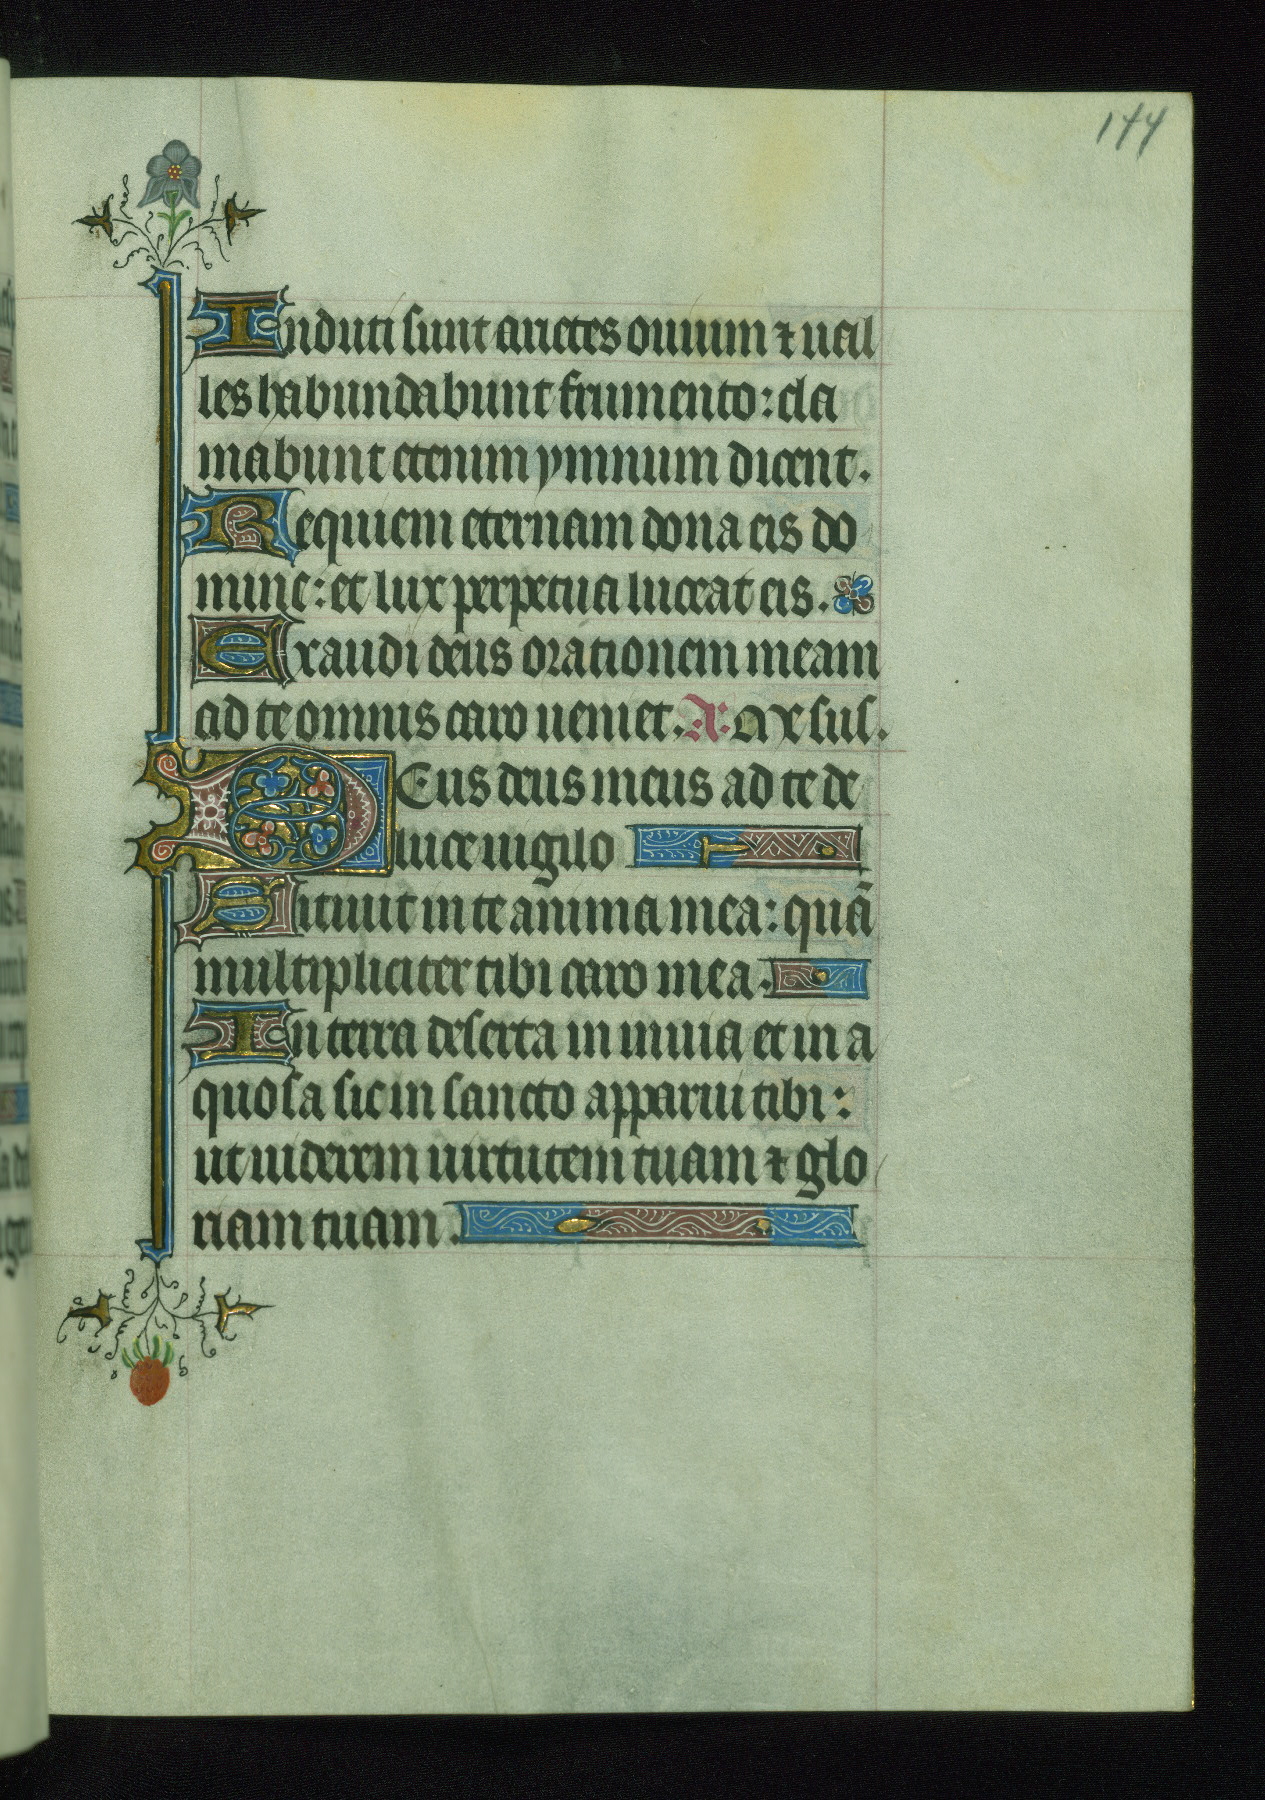 144
Induti sunt arietes ouium ⁊ ual
les habundabunt frumento: cla
mabunt etenim ymnum dicent.
Requiem eternam dona eis do
mine: et lux perpetua luceat eis.
Exaudi deus orationem meam
ad te omnis caro ueniet. A: Me sus.
Deus deus meus ad te de
luce uigilo
Sitiuit in te anima mea: quā
multipliciter tibi caro mea.
In terra deserta in inuia et in a
quosa sic in sancto apparui tibi:
ut uiderem uirtutem tuam ⁊ glo
riam tuam.